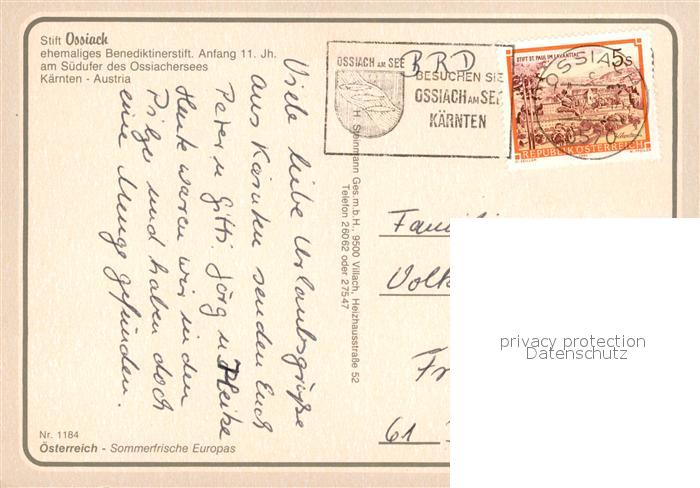 Stift Ossiach
ehemaliges Benediktinerstift. Anfang 11. Jh.
am Südufer des Ossiachersees
Kärnten - Austria
Viele liebe Urlaubsgrüße
aus Kärnten senden Euch
Peter u. Gitti. Jörg u. Heike
Heute waren wir in den
Pilze und haben doch
eine Menge gefunden.
Nr. 1184
Österreich - Sommerfrische Europas
H. Steinmann Ges.m.b.H., 9500 Villach, Heizhausstraße 52
Telefon 26062 oder 27547
OSSIACH AM SEE
BRD
BESUCHEN SIE
OSSIACH AM SEE
KÄRNTEN
STIFT ST. PAUL IM LAVANTTAL
5s
REPUBLIK ÖSTERREICH
OSSIA
Famili
Volk
Fr
61
privacy protection
Datenschutz